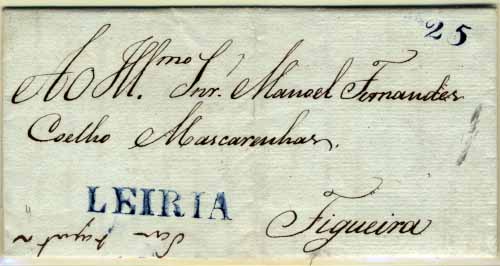 25
Ao Ill.mo Snr. Manoel Fernandes
Coelho Mascarenhas.
LEIRIA
Figueira